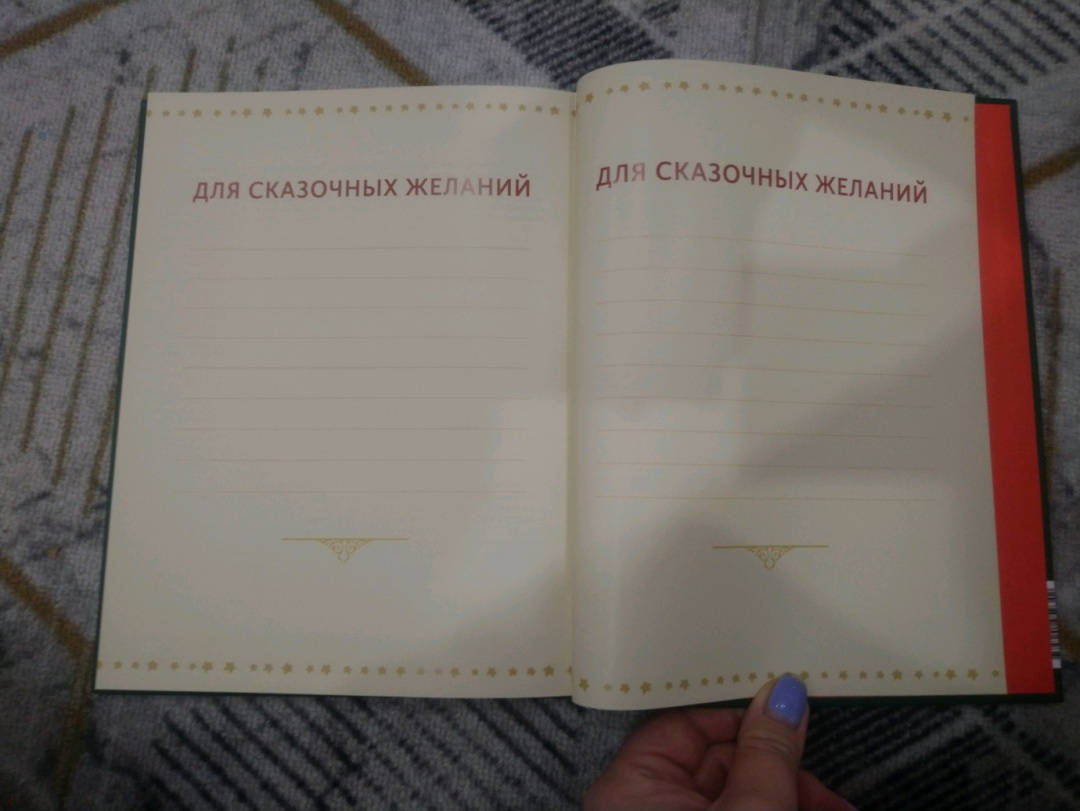 ДЛЯ СКАЗОЧНЫХ ЖЕЛАНИЙ
ДЛЯ СКАЗОЧНЫХ ЖЕЛАНИЙ